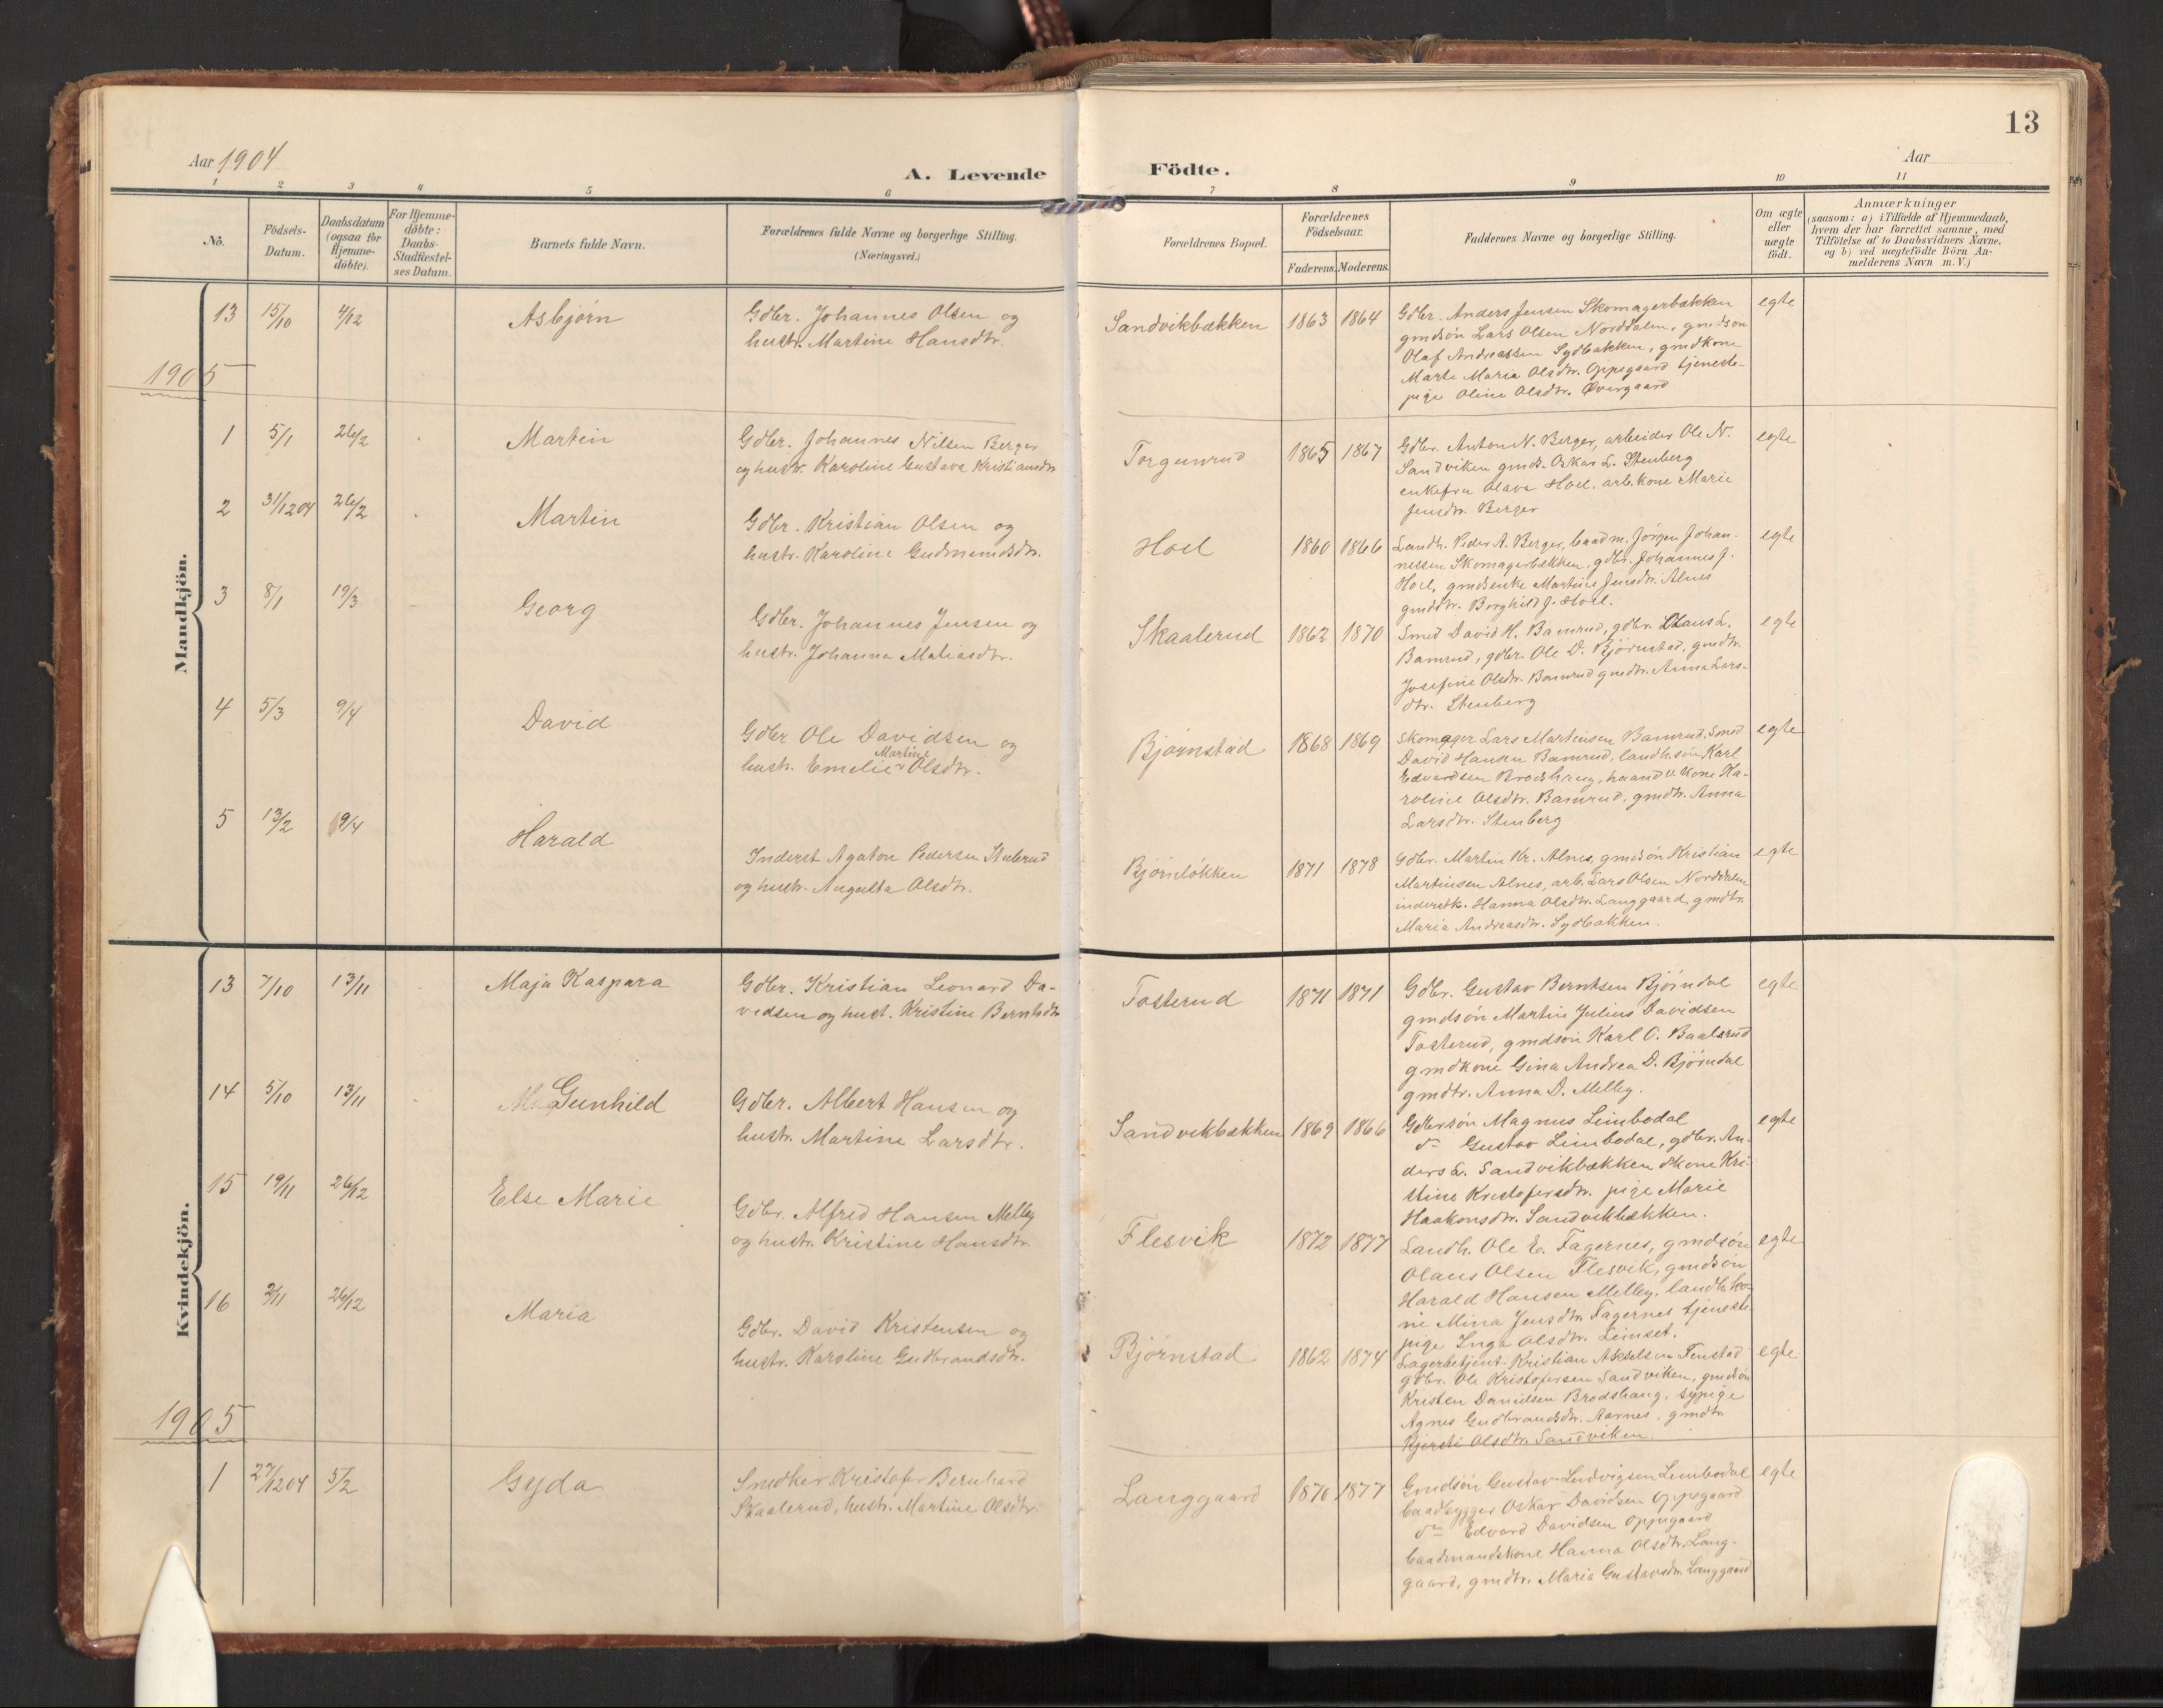 13
Aar 1904
A. Levende Födte.
Aar
1 2 3 4 5 6 7 8 9 10 11
No.
Födsels-Datum.
Daabsdatum (ogsaa for Hjemme-döbte).
For Hjemme-döbte: Daabs-Stadfæstel-ses Datum.
Barnets fulde Navn.
Forældrenes fulde Navne og borgerlige Stilling.
(Næringsvei.)
Forældrenes Bopæl.
Forældrenes Födselsaar.
Faderens. Moderens.
Faddernes Navne og borgerlige Stilling.
Om ægte eller uægte födt.
Anmærkninger
(saasom: a) i Tilfælde af Hjemmedaab,
hvem der har forrettet samme, med
Tilföielse af to Daabsvidners Navne,
og b) ved uægtefödte Börn An-
melderens Navn m. V.)
Mandkjön.
13 15/10 4/12 Asbjørn
Gdbr. Johannes Olsen og
hustr. Martine Hansdtr.
Sandvikbækken 1863 1864
Gdbr. Anders Jensen Skomagerbækken
gmdsön Lars Olsen Norddalen, gmdsön
Olaf Andreassen Sydbakken, gmdkone
Marte Maria Olsdtr. Oppegaard tjeneste-
pige Oline Olsdtr. Øvergaard
egte
1905
1 5/1 26/2 Martin
Gdbr. Johannes Nilsen Berger
og hustr. Karoline Gustava Kristiansdtr
Torgunrud 1865 1867
Gdbr. Anton N. Berger, arbeider Ole N.
Sandviken gmds. Oskar L. Stenberg
enkefru Olava Hoel, arb. kone Marie
Jensdtr. Berger
egte
2 31/12 04 26/2 Martin
Gdbr. Kristian Olsen og
hustr. Karoline Gudmundsdtr.
Hoel 1860 1866
Landh. Peder A. Berger, baadm. Jörgen Johan-
nessen Skomagerbækken, gdbr. Johannes J.
Hoel, gmdsenke Martine Jensdtr. Alnes
gmddtr. Borghild J. Hoel.
egte
3 8/1 19/3 Georg
Gdbr. Johannes Jensen og
hustr. Johanna Matiasdtr.
Skaalerud 1862 1870
Smed David H. Bamrud, gdbr. Claus L.
Bamrud, gdbr. Ole D. Björnstad, gmdtr.
Josefine Olsdtr. Bamrud gmdtr. Anna Lars-
dtr. Stenberg
egte
4 5/3 9/4 David
Gdbr Ole Davidsen og
Martine
hustr. Emelie Olsdtr.
Bjørnstad 1868 1869
Skomager Lars Martinsen Bamrud, Smed
David Hansen Bamrud, landh. sön Karl
Edvardsen Brodshaug, haandv. kone Ka-
roline Olsdtr. Bamrud, gmdtr. Anna
Larsdtr. Stenberg
egte
5 13/2 9/4 Harald
Inderst Agaton Pedersen
og hustr. Augusta Olsdtr.
Bjørneløkken 1871 1878
Gdbr. Martin Kr. Alnes, gmdsön Kristian
Martinsen Alnes, arb. Lars Olsen Norddalen
inderstk. Hanna Olsdtr. Langgaard, gmdtr.
Maria Andreasdtr. Sydbakken.
egte
Kvindekjön.
13 7/10 13/11 Maja Kaspara
Gdbr. Kristian Leonard Da-
vidsen og hust. Kristine Berntsdtr
Tosterud 1871 1871
Gdbr. Gustav Berntsen Bjørndal
gmdsön Martin Julius Davidsen
Tosterud, gmdsön Karl C. Baalsrud
gmdkone Gina Andrea D. Bjørndal
gmdtr. Anna D. Melby.
egte
14 5/10 13/11 Gunhild
Gdbr. Albert Hansen og
hustr. Martine Larsdtr.
Sandvikbækken 1869 1866
Gdbrsön Magnus Limbodal
do Gustav Limbodal, gdbr. An-
ders L. Sandvikbækken kone Kri-
stine Kristofersdtr. pige Marie
Haakonsdtr. Sandvikbækken.
egte
15 19/11 26/12 Else Marie
Gdbr. Alfred Hansen Melby
og hustr. Kristine Hansdtr.
Flesvik 1872 1877
Landh. Ole E. Fagernes, gmdsön
Olaus Olsen Flesvik, gmdsön
Harald Hansen Melby, landh. ko-
ne Mina Jensdtr. Fagernes tjeneste
pige Inga Olsdtr. Limset.
egte
16 2/11 26/12 Maria
Gdbr. David Kristensen og
hustr. Karoline Gudbrandsdtr.
Bjørnstad 1862 1874
Lagerbetjent Kristian Akselsen Fenstad
gdbr. Ole Kristofersen Sandviken, gmdsön
Kristen Danielsen Brodshaug, sypige
Agnes Gudbrandsdtr. Aarnes, gmdtr.
Kjersti Olsdtr. Sandviken.
egte
1905
1 27/12 04 5/2 Gyda
Snedker Kristofer Bernhard
Skaalerud, hustr. Martine Olsdtr.
Langgaard 1870 1877
Gmdsön Gustav Ludvigsen Limbodal
baadbygger Oskar Davidsen Oppegaard
do Edvard Davidsen Oppegaard
baadmandskone Hanna Olsdtr. Lang-
gaard, gmdtr. Maria Gustavsdtr. Langgaard
egte